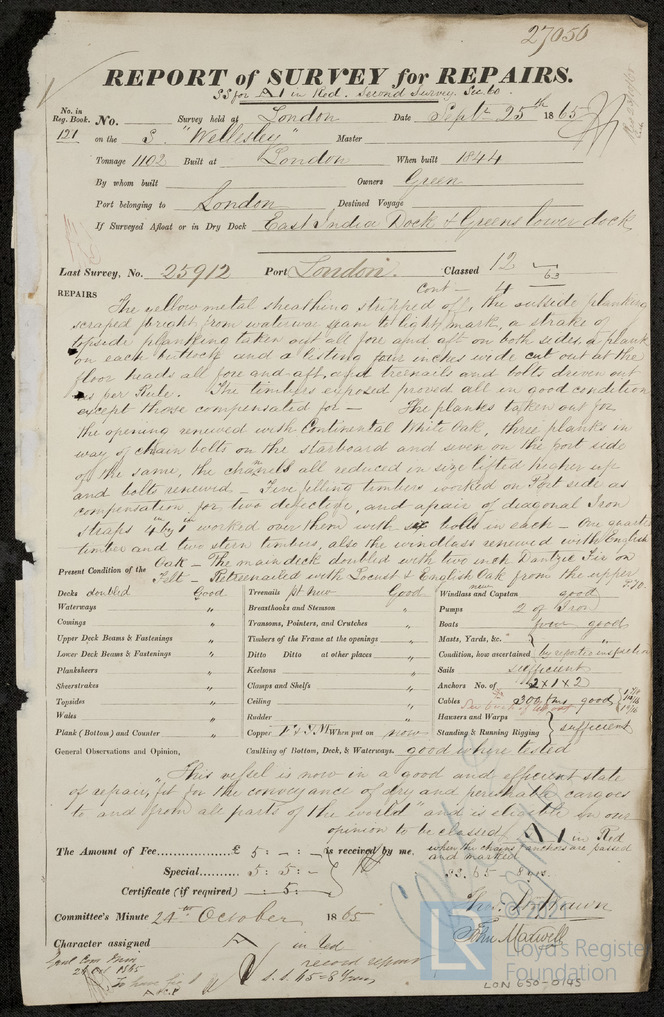 27050
REPORT of SURVEY for REPAIRS.
SS for A1 in Red. Second Survey. Sec 60.
No. in Reg. Book. No. Survey held at London Date Septr 25th 1865
121 on the S. "Wellesley" Master
Tonnage 1102 Built at London When built 1844
By whom built Owners Green
Port belonging to London Destined Voyage
If Surveyed Afloat or in Dry Dock East India Dock & Greens lower dock
Last Survey, No. 25912 Port London. Classed 12 63
Cont - 4
REPAIRS
The yellow metal sheathing stripped off, the outside planking
scraped bright from waterway seam to light mark, a strake of
topside planking taken out all fore and aft on both sides, a plank
on each buttock and a listing four inches wide cut out at the
floor heads all fore and aft, and treenails and bolts driven out
as per Rule. The timbers exposed proved all in good condition
except those compensated for - The planks taken out for
the opening renewed with Continental White Oak, three planks in
way of chain bolts on the starboard and seven on the port side
of the same, the channels all reduced in size lifted higher up
and bolts renewed - Five filling timbers worked on Port side as
compensation for two defective, and a pair of diagonal Iron
Straps 4in by 1in worked over them with six bolts in each - One quarter
timber and two stern timbers, also the windlass renewed with English
Oak - The main deck doubled with two inch Dantzic Fir on
Present Condition of the Felt - Retreenailed with Locust & English Oak from the upper
T.O.
Decks doubled Good Treenails pt new Good Windlass and Capstan new good
Waterways " Breasthooks and Stemson " Pumps 2 of Iron
Comings " Transoms, Pointers, and Crutches " Boats four good
Upper Deck Beams & Fastenings " Timbers of the Frame at the openings " Masts, Yards, &c. "
Lower Deck Beams & Fastenings " Ditto Ditto at other places " Condition, how ascertained by reporters inspection
Planksheers " Keelsons " Sails sufficient
Sheerstrakes " Clamps and Shelfs " Anchors No. of 2 x 1 x 2
Topsides " Ceiling " Cables 300 fms good
Wales " Rudder " Hausers and Warps
Plank (Bottom) and Counter " Copper Y & F M When put on now Standing & Running Rigging sufficient
General Observations and Opinion, Caulking of Bottom, Deck, & Waterways. good where tested
"This vessel is now in a good and efficient state
of repair, fit for the conveyance of dry and perishable cargoes
to and from all parts of the world" and is eligible in our
opinion to be classed A 1 in Red
when the chains & anchors are passed
and marked
The Amount of Fee £ 5 : - : - is received by me,
Special 5 : 5 : - S.S. 65 - 8 yrs.
Certificate (if required) - : 5 : -
Committee's Minute 24th October 1865
John Maxwell
Character assigned A in red
record repairs
S.S. 65 = 8 Years
24 Oct 1865
© 2021
LR
Lloyd's Register
Foundation
LON 650-0145